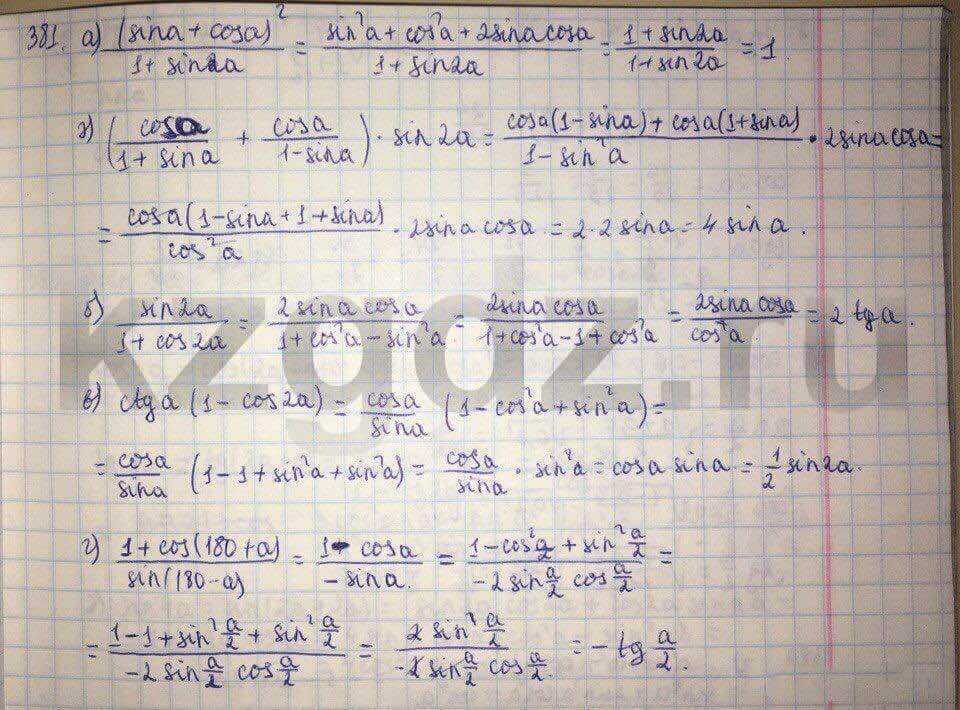 381. а) (sina + cosa)² / (1 + sin2a) = (sin²a + cos²a + 2sina cosa) / (1 + sin2a) = (1 + sin2a) / (1 + sin2a) = 1.
г) (cosa / (1 + sina) + cosa / (1 - sina)) · sin2a = (cosa(1 - sina) + cosa(1 + sina)) / (1 - sin²a) · 2sina cosa =
= cosa(1 - sina + 1 + sina) / cos²a · 2sina cosa = 2·2sina = 4 sina.
б) sin2a / (1 + cos2a) = 2sina cosa / (1 + cos²a - sin²a) = 2sina cosa / (1 + cos²a - 1 + cos²a) = 2sina cosa / cos²a = 2 tga.
в) ctga (1 - cos2a) = cosa / sina (1 - cos²a + sin²a) =
= cosa / sina (1 - 1 + sin²a + sin²a) = cosa / sina · sin²a = cosa sina = 1/2 sin2a.
г) (1 + cos(180 + a)) / sin(180 - a) = (1 - cosa) / (-sina) = (1 - cos² a/2 + sin² a/2) / (-2 sin a/2 cos a/2) =
= (1 - 1 + sin² a/2 + sin² a/2) / (-2 sin a/2 cos a/2) = 2 sin² a/2 / (-2 sin a/2 cos a/2) = - tg a/2.
kzgdz.ru